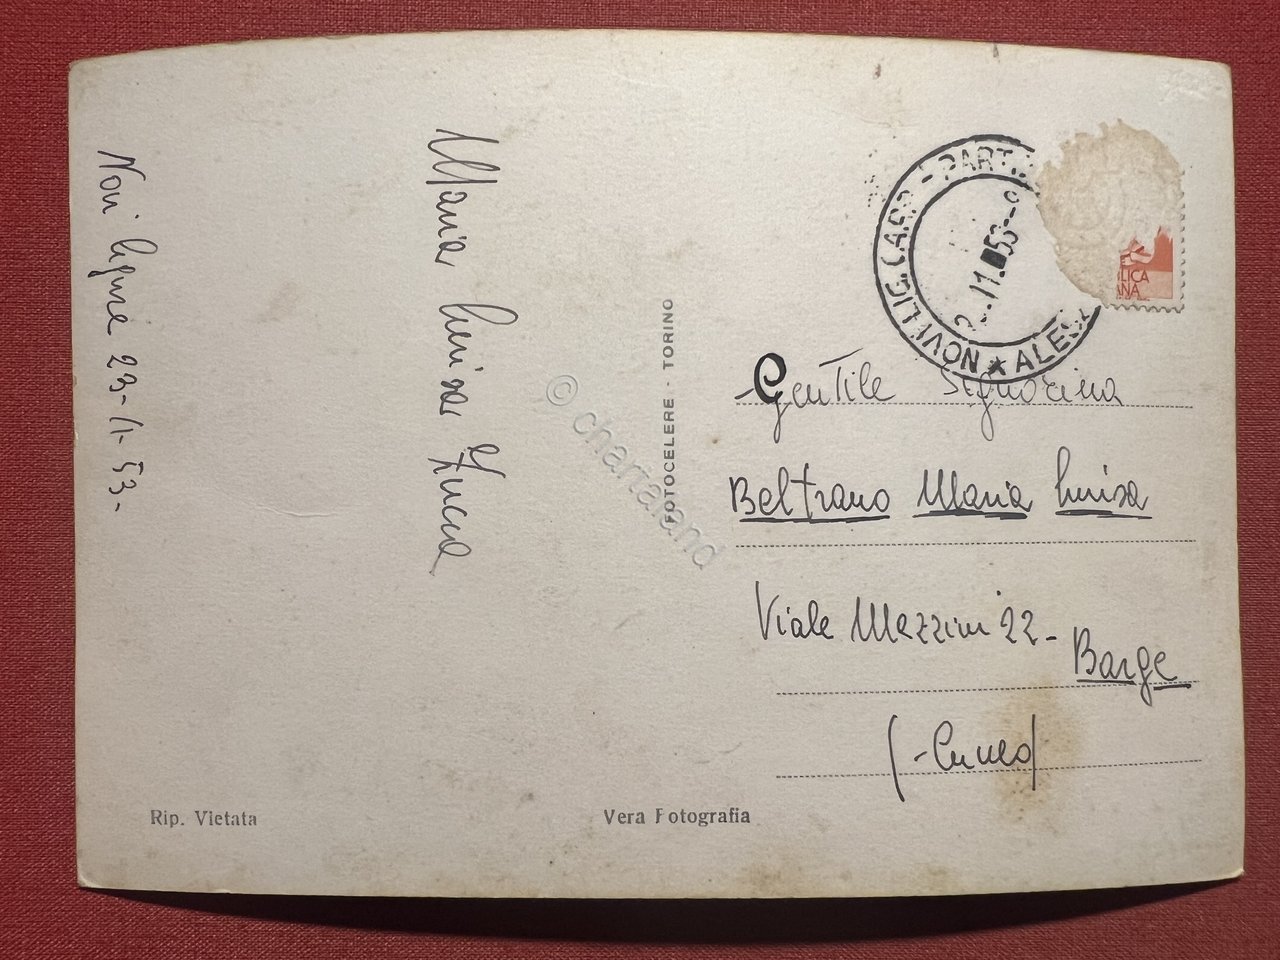 Novi ligure 23-1-53-
Maria Luisa Zucca
FOTOCELERE - TORINO
NOVI LIG. CARR - PART.
★ ALES
LICA
ANA
-Gentile Signorina
Beltrano Maria Luisa
Viale Mazzini 22-
Barge
(-Cuneo)
Rip. Vietata
Vera Fotografia
© chartaland